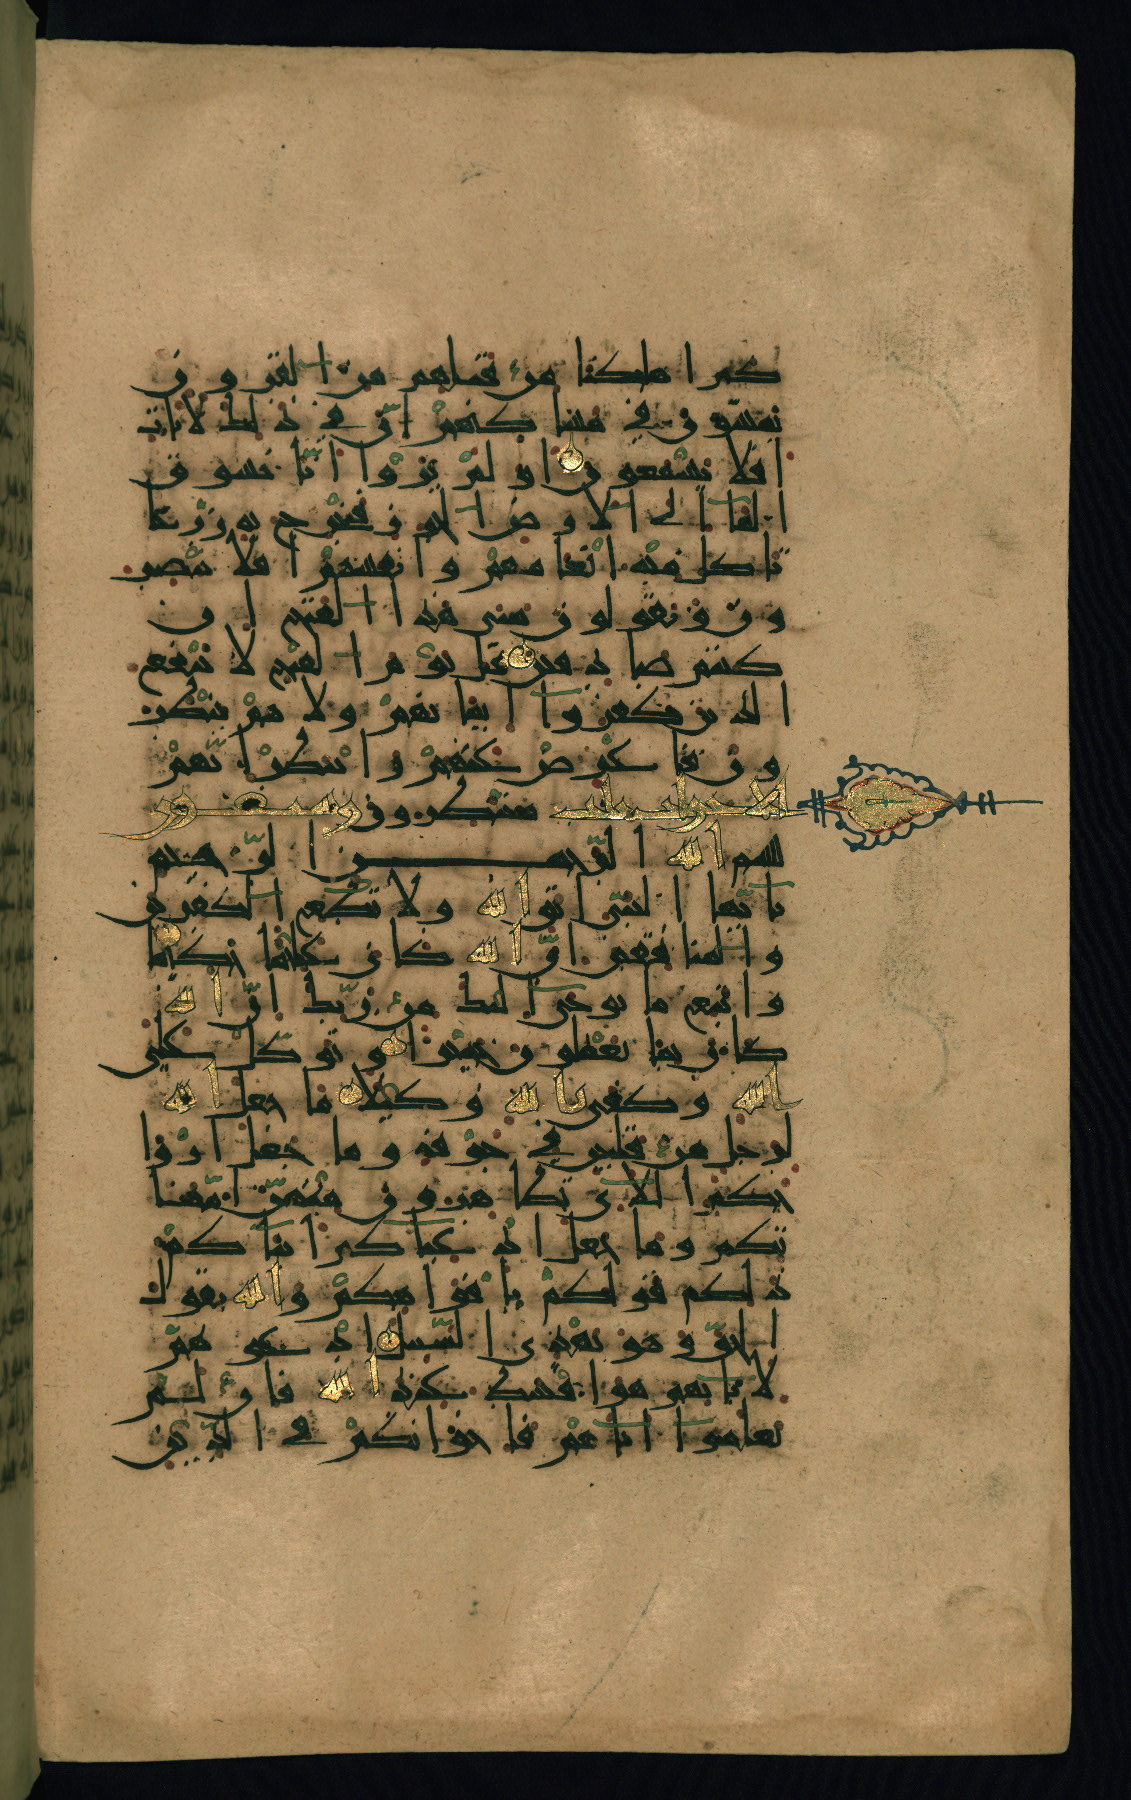 كم اهلكنا من قبلهم من القرون
يمشون في مساكنهم ان في ذلك لايات
افلا يسمعون اولم يروا انا نسوق
الما الى الارض الجرز فنخرج به زرعا
تاكل منه انعامهم وانفسهم افلا يبصر
ون ويقولون متى هذا الفتح ان
كنتم صادقين قل يوم الفتح لا ينفع
الذين كفروا ايمانهم ولا هم ينظر
ون فاعرض عنهم وانتظر انهم
الاحزاب ثلث منتظرون وسبعون
بسم الله الرحمن الرحيم
يايها النبي اتق الله ولا تطع الكفرين
والمنافقين ان الله كان عليما حكيما
واتبع ما يوحى اليك من ربك ان الله
كان بما تعملون خبيرا وتوكل على
الله وكفى بالله وكيلا ما جعل الله
لرجل من قلبين في جوفه وما جعل ازوا
جكم اللاي تظاهرون منهن امها
تكم وما جعل ادعياكم ابناكم
ذلكم قولكم بافواهكم والله يقول
الحق وهو يهدي السبيل ادعوهم
لابايهم هو اقسط عند الله فان لم
تعلموا اباهم فاخوانكم في الدين